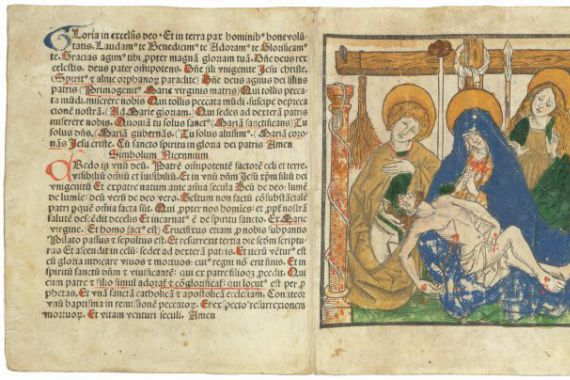 Gloria in excelsis deo · Et in terra pax hominibꝰ bone volū
tatis. Laudamꝰ te Benedicimꝰ te Adoramꝰ te Glorificamꝰ
te. Gracias agimꝰ tibi ꝓpter magnā gloriam tuā. Dñe deus rex
celestis. deus pater oīpotens. Dñe fili vnigenite Jesu christe.
(Spiritꝰ & alme orphanoꝝ paraclite) Dñe deus agnus dei filius
patris (Primogenitꝰ Marie virginis matris) Qui tollis pecca
ta mūdi. miserere nobis Qui tollis peccata mūdi. suscipe depreca
cionē nostrā. (Ad Marie gloriam.) Qui sedes ad dexterā patris
miserere nobis. Quoniā tu solus sanctꝰ (Mariā sanctificans) Tu
solus dñs. (Mariā gubernās. (Tu solus altissimꝰ. (Mariā coro-
nās Jesu criste. Cū sancto spiritu in gloria dei patris Amen
Simbolum Nicennum
Credo in vnū deū. Patrē oīpotentē factorē celi et terre.
visibiliū oīniū et īuisibiliū. Et in vnū dñm Jesū xp̄m filiū dei
vnigenitū Et expatre natum ante oīnia secula Deū de deo: lumē
de lumīe: deū verū de deo vero. Genitum non factū cōsubstācialē
patri pquē oīnia facta sūt. Qui ꝓpter nos homīes: et ꝓpꝉ nostrā
salutē descēdit decelis Et incarnatꝰ ē de spiritu sancto. Ex Marie
virgine. Et homo factꝰ est: Crucifixus etiam ꝓ nobis: subpontio
Pilato passus et sepultus est. Et resurrexit tertia die secm̄ scriptu
ras Et ascendit in celū: sedet ad dexterā patris. Et iterū vēturꝰ est
cū gloria iudicare viuos et mortuos: cuiꝰ regni nō erit finis. Et in
spiritū sanctū dn̄m et viuificantē: qui ex patre filioqꝫ ꝓcedit. Qui
cum patre et filio simul adoratꝰ et cōglorificatꝰ: qui locutꝰ est per ꝓ
phetas. Et vnā sanctā catholicā et apostolicā ecclesiam. Confiteor
vnū baptisma in remissionē peccatoꝝ. Et expecto resurrexionem
mortuoꝝ. Et vitam venturi seculi. Amen